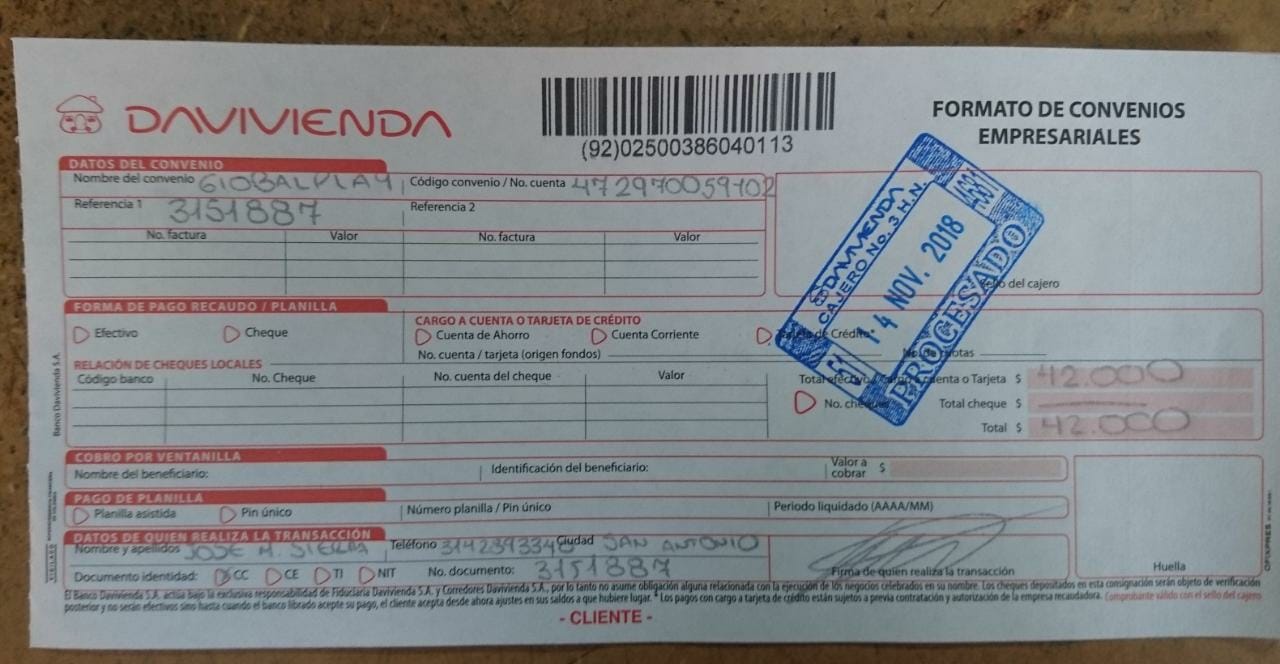 DAVIVIENDA
(92)02500386040113
FORMATO DE CONVENIOS
EMPRESARIALES
DATOS DEL CONVENIO
Nombre del convenio GIOBALPLAY Código convenio / No. cuenta 472970059702
Referencia 1 3151887 Referencia 2
No. factura Valor No. factura Valor
DAVIVIENDA
CAJERO No. 3 H.N.
4 NOV. 2018
PROCESADO
Sello del cajero
FORMA DE PAGO RECAUDO / PLANILLA
Efectivo Cheque
CARGO A CUENTA O TARJETA DE CRÉDITO
Cuenta de Ahorro Cuenta Corriente Tarjeta de Crédito
No. cuenta / tarjeta (origen fondos) No. de cuotas
RELACIÓN DE CHEQUES LOCALES
Código banco No. Cheque No. cuenta del cheque Valor
Total efectivo / Cargo a cuenta o Tarjeta $ 42.000
No. cheques Total cheque $
Total $ 42.000
COBRO POR VENTANILLA
Nombre del beneficiario: Identificación del beneficiario: Valor a cobrar $
PAGO DE PLANILLA
Planilla asistida Pin único Número planilla / Pin único Periodo liquidado (AAAA/MM)
DATOS DE QUIEN REALIZA LA TRANSACCIÓN
Nombre y apellidos JOSE M. SIERRA Teléfono 3142393346 Ciudad SAN ANTONIO
Documento identidad: CC CE TI NIT No. documento: 3151887
Firma de quien realiza la transacción
Huella
El Banco Davivienda S.A. actúa bajo la exclusiva responsabilidad de Fiduciaria Davivienda S.A. y Corredores Davivienda S.A., por lo tanto no asume obligación alguna relacionada con la ejecución de los negocios celebrados en su nombre. Los cheques depositados en esta consignación serán objeto de verificación
posterior y no serán efectivos sino hasta cuando el banco librado acepte su pago, el cliente acepta desde ahora ajustes en sus saldos a que hubiere lugar. * Los pagos con cargo a tarjeta de crédito están sujetos a previa contratación y autorización de la empresa recaudadora. Comprobante válido con el sello del cajero
- CLIENTE -
Banco Davivienda S.A.